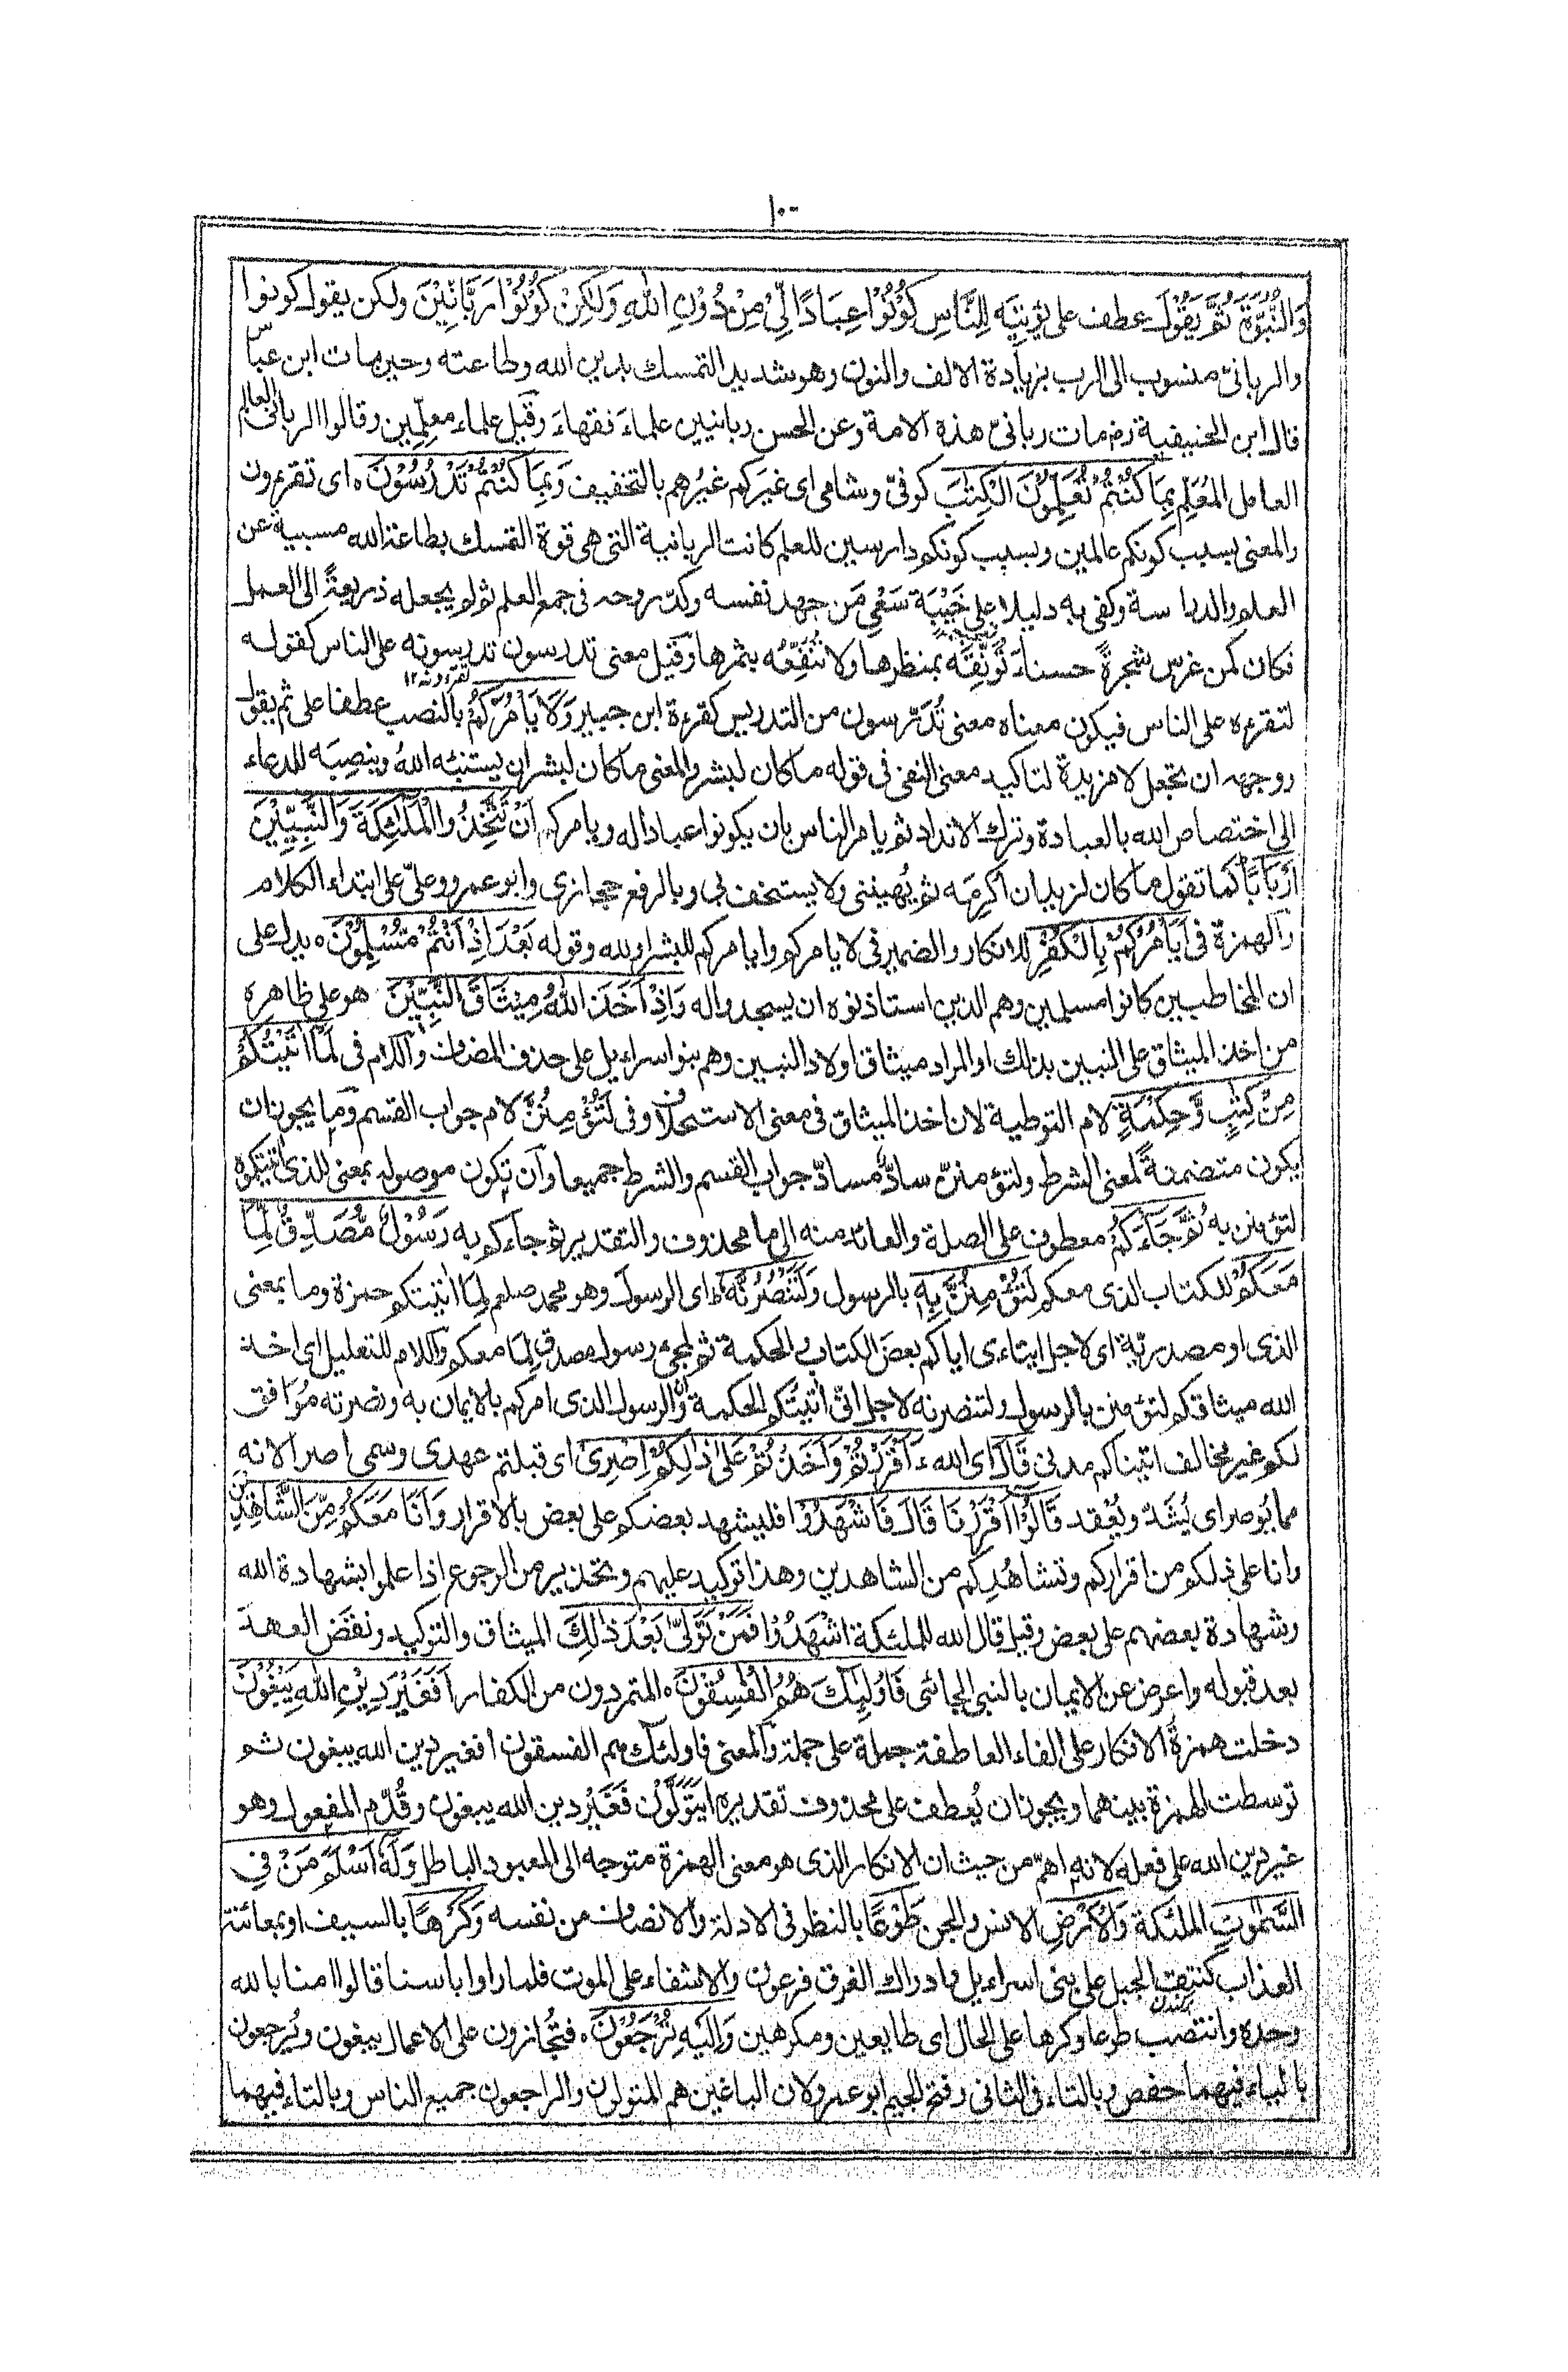 ١٠٠
وَالنُّبُوَّةَ ثُمَّ يَقُوْلَ عطف على يؤتيَه لِلنَّاسِ كُوْنُوْا عِبَادًا لِّيْ مِنْ دُوْنِ اللّٰهِ وَلٰكِنْ كُوْنُوْا رَبَّانِيّٖنَ ولكن يقول كونوا
والربانىّ منسوب الى الرب بزيادة الالف والنون وهو شديد التمسك بدين الله وطاعته وحين مات ابن عباس
قال ابن الحنيفية رضـ مات ربانىّ هذه الامة وعن الحسن ربانيين علماءَ فقهاءَ وقيل علماء معلّمين وقالوا الربانى العالم
العامل المُعَلِّم بِمَا كُنْتُمْ تُعَلِّمُوْنَ الْكِتٰبَ كوفىّ وشامى اى غيرَكم غيرُهم بالتخفيف وَبِمَا كُنْتُمْ تَدْرُسُوْنَ ه اى تقرءون
والمعنى بسبب كونكم عالمين وبسبب كونكم دارسين للعلم كانت الربانية التى هى قوة التمسك بطاعة الله مسببية عن
العلم والدراسة وكفى به دليلا على خَيْبَة سَعْىِ مَن جهد نفسه وكدّ روحه فى جمع العلم ثم لم يجعله ذريعةً الى العمل
فكان كمن غرس شجرةً حسناءَ تُونِقُه بمنظرها ولا تَنْفَعُه بثمرها وقيل معنى تدرسون تدرسونه على الناس كقوله
تقرءونه ١٢
لتقرءه على الناس فيكون معناه معنى تُدَرّسون من التدريس كقرءة ابن جبير وَلَا يَأْمُرَكُمْ بالنصب عطفا على ثم يقول
ووجهه ان تجعل لا مزيدة لتاكيد معنى النفى فى قوله ما كان لبشر والمعنى ما كان لبشر ان يستنبئه اللهُ وينصِبَه للدعاء
الى اختصاص الله بالعبادة وترك الانداد ثم يامر الناس بان يكونوا عبادا له ويامركم اَنْ تَتَّخِذُوا الْمَلٰئِكَةَ وَالنَّبِيّٖنَ
اَرْبَابًا كما تقول ما كان لزيد ان اُكرِمَه ثم يُهينَنى ولا يستخف بى وبالرفع حجازى وابو عمرو وعلىّ على ابتداء الكلام
والهمزة فى اَيَأْمُرُكُمْ بِالْكُفْرِ للانكار والضمير فى لا يامركم وايامركم للبشر او لله وقوله بَعْدَ اِذْ اَنْتُمْ مُّسْلِمُوْنَ ه يدل على
ان المخاطبين كانوا مسلمين وهم الذين استاذنوه ان يسجدوا له وَاِذْ اَخَذَ اللّٰهُ مِيْثَاقَ النَّبِيّٖنَ هو على ظاهره
من اخذ الميثاق على النبيين بذلك او المراد ميثاق اولاد النبيين وهم بنو اسراءيل على حذف المضاف واللام فى لَمَا اٰتَيْتُكُمْ
مِنْ كِتٰبٍ وَّحِكْمَةٍ لام التوطية لان اخذ الميثاق فى معنى الاستحلاف وفى لَتُؤْمِنُنَّ لام جواب القسم وما يجوز ان
يكون متضمنةً لمعنى الشرط ولتؤمننّ سادّ مسادّ جواب القسم والشرط جميعا وان تكون موصوله بمعنى للذى اٰتيتكموه
لتؤمنن به ثُمَّ جَآءَكُمْ معطوف على الصلة والعائد منه الى ما محذوف والتقدير ثم جاءكم به رَسُوْلٌ مُّصَدِّقٌ لِّمَا
مَعَكُمْ للكتاب الذى معكم لَتُؤْمِنُنَّ بِهٖ بالرسول وَلَتَنْصُرُنَّهٗ ط اى الرسول وهو محمد صلعم لِمَا اٰتيتكم حمزة وما بمعنى
الذى او مصدريّة اى لاجل ايتاءى اياكم بعضَ الكتاب والحكمة ثم لمجىء رسول مصدق لِمَا معكم واللام للتعليل اى اخذ
الله ميثاقكم لتؤمنن بالرسول ولتنصرنه لاجل انّى اٰتيتُكم الحكمة وانّ الرسول الذى امركم بالايمان به ونصرته مُوَافق
لكم غير مخالف اٰتيناكم مدنى قَالَ اى الله ءَاَقْرَرْتُمْ وَاَخَذْتُمْ عَلٰى ذٰلِكُمْ اِصْرِىْ اى قبلتم عهدى وسمى اصرا لانه
مما يُوصر اى يُشَدّ ويُعقد قَالُوْا اَقْرَرْنَا قَالَ فَاشْهَدُوْا فليشهد بعضكم على بعض بالاقرار وَاَنَا مَعَكُمْ مِّنَ الشَّاهِدِيْنَ
وانا على ذلكم من اقراركم وتشاهُدِكم من الشاهدين وهذا توكيد عليهم وتحذير من الرجوع اذا علموا بشهادة الله
وشهادة بعضهم على بعض وقيل قال الله للملئكة اشهَدُوْا فَمَنْ تَوَلّٰى بَعْدَ ذٰلِكَ الميثاق والتوكيد ونقضَ العهدَ
بعد قبوله واعرض عن الايمان بالنبى الجائى فَاُولٰٓئِكَ هُمُ الْفٰسِقُوْنَ ه المتمردون من الكفار اَفَغَيْرَ دِيْنِ اللّٰهِ يَبْغُوْنَ
دخلت همزةُ الانكار على الفاء العاطفة جملة على جملة والمعنى فاولئك هم الفسقون أفغير دين الله يبغون ثم
توسطت الهمزة بينهما ويجوز ان يُعطف على محذوف تقديره ايَتَوَلَّوْنَ فَغَيْرَ دين الله يبغون وقُدّم المفعول وهو
غير دين الله على فعله لانه اهمّ من حيث ان الانكار الذى هو معنى الهمزة متوجه الى المعبود الباطل وَلَهٗ اَسْلَمَ مَنْ فِي
السَّمٰوٰتِ الملئكة وَالْاَرْضِ الانس والجن طَوْعًا بالنظر فى الادلة والانصاف من نفسه وَكَرْهًا بالسيف او بمعائنة
العذاب كنتق الجبل على بنى اسراءيل وادراك الغرق فرعون والاشفاء على الموت فلما راوا باسنا قالوا امنا بالله
وحده وانتصب طوعا وكرها على الحال اى طايعين ومكرهين وَاِلَيْهِ يُرْجَعُوْنَ ه فتُجازون على الاعمال يبغون ويُرجعون
بالياء فيهما حفص وبالتاء فى الثانى وفتح الجيم ابو عمرو لان الباغين هم المتولون والراجعون جميع الناس وبالتاء فيهما